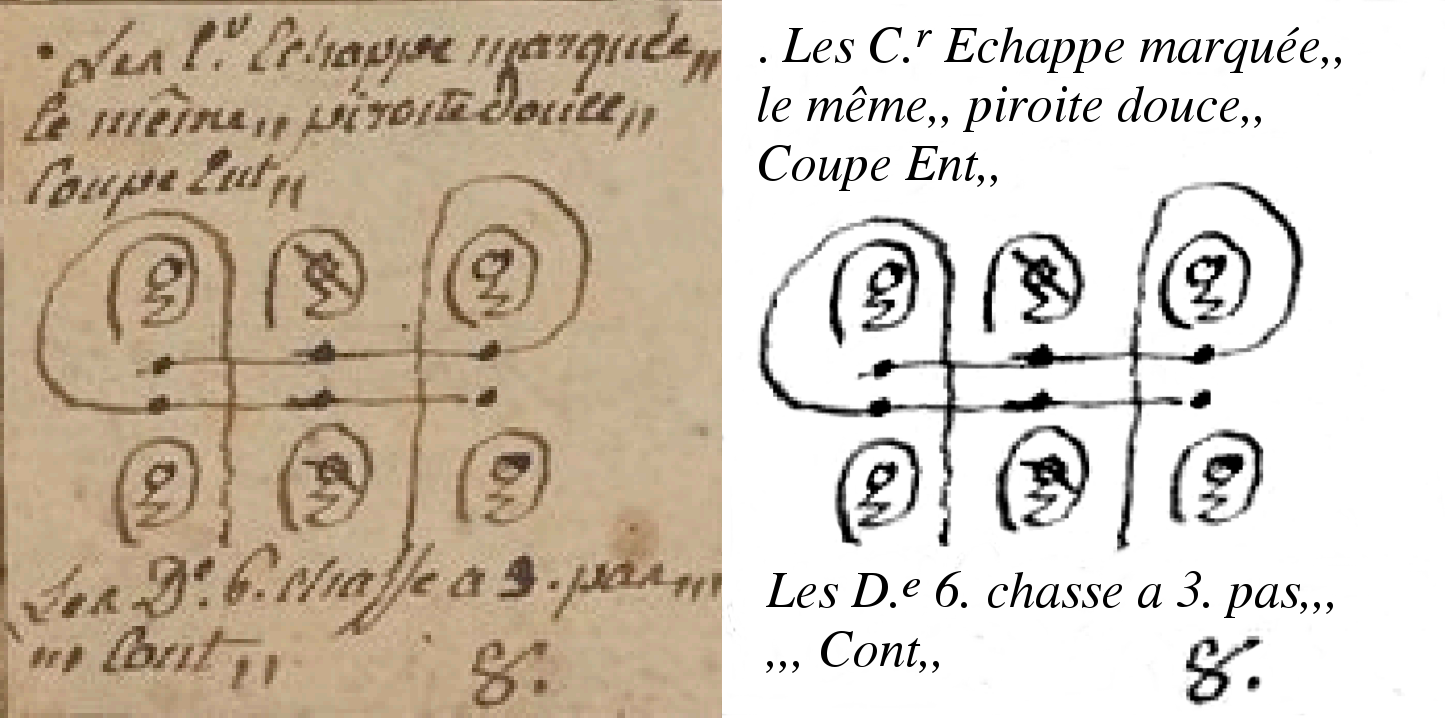 . Les C.r Echappe marquée,,
le même,, piroite douce,,
Coupe Ent,,
Les D.e 6. chasse a 3. pas,,,
,,, Cont,,
8.
. Les C.r Echappe marquée,,
le même,, piroite douce,,
Coupe Ent,,
Les D.e 6. chasse a 3. pas,,,
,,, Cont,,
8.